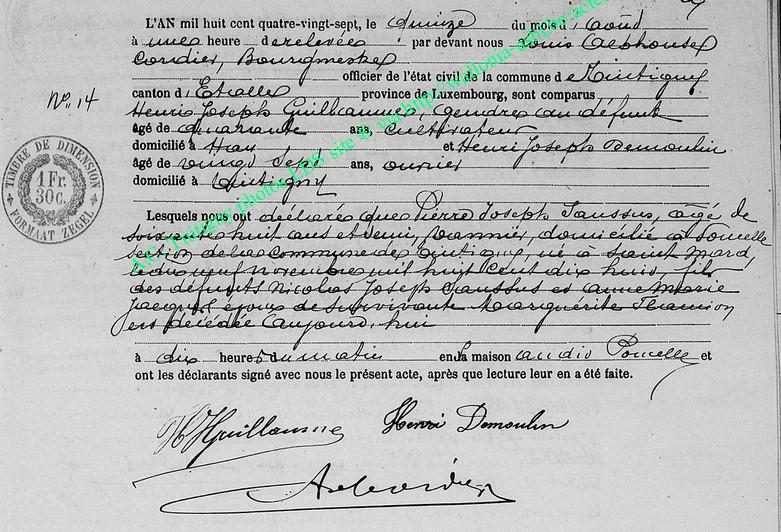 L'AN mil huit cent quatre-vingt-sept, le quinze du mois d'août
à une heure de relevée par devant nous Louis Alphonse
Cordier, Bourgmestre
officier de l'état civil de la commune de Tintigny
No. 14
canton d'Etalle province de Luxembourg, sont comparus
Henri Joseph Guillaume, gendre au défunt
âgé de quarante ans, cultivateur
domicilié à Han et Henri Joseph Demoulin
âgé de vingt sept ans, ouvrier
domicilié à Tintigny
TIMBRE DE DIMENSION
1 Fr.
30c.
FORMAAT ZEGEL
Lesquels nous ont déclaré que Pierre Joseph Saussus, âgé de
soixante huit ans et demi, vannier, domicilié à Poncelle
section de la commune de Tintigny, né à Saint Mard,
le dix neuf novembre mil huit cent dix huit, fils
des défunts Nicolas Joseph Saussus et Anne Marie
Jacques, époux de survivante Marguérite
est décédé aujourd'hui
à dix heures du matin en la maison au dit Poncelle et
ont les déclarants signé avec nous le présent acte, après que lecture leur en a été faite.
HGuillaume Henri Demoulin
A Cordier
A.C. Tintigny photos LDS site © via http://wallonia-asbl.be/acte